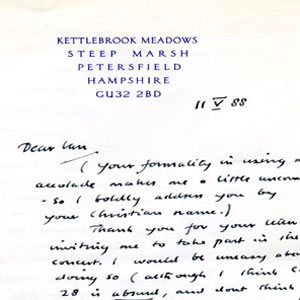 KETTLEBROOK MEADOWS
STEEP MARSH
PETERSFIELD
HAMPSHIRE
GU32 2BD
11 V 88
Dear Ian,
( Your formality in using m
accolade makes me a little uncom
- so I boldly address you by
your Christian name.)
Thank you for your
inviting me to take part in the
concert. I would be uneasy abou
doing so ( although I think
28 is absurd, and dont think